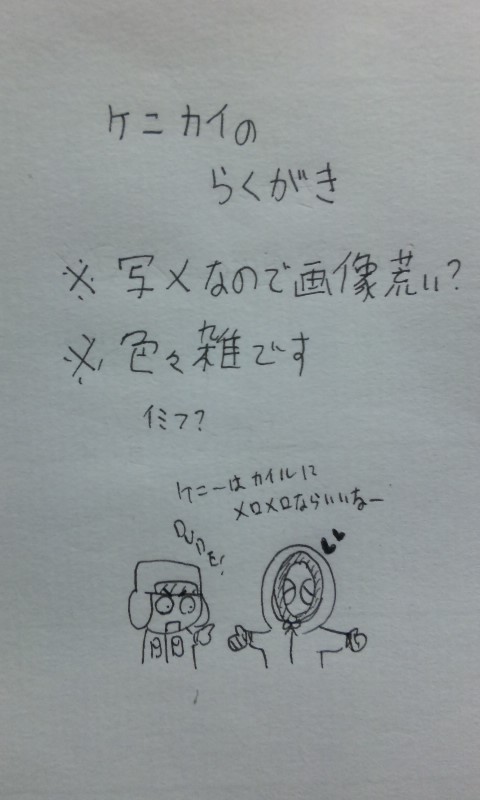 ケニカイの
らくがき
※写メなので画像荒い?
※色々雑です
イミフ?
ケニーはカイルに
メロメロならいいなー
DUDE!